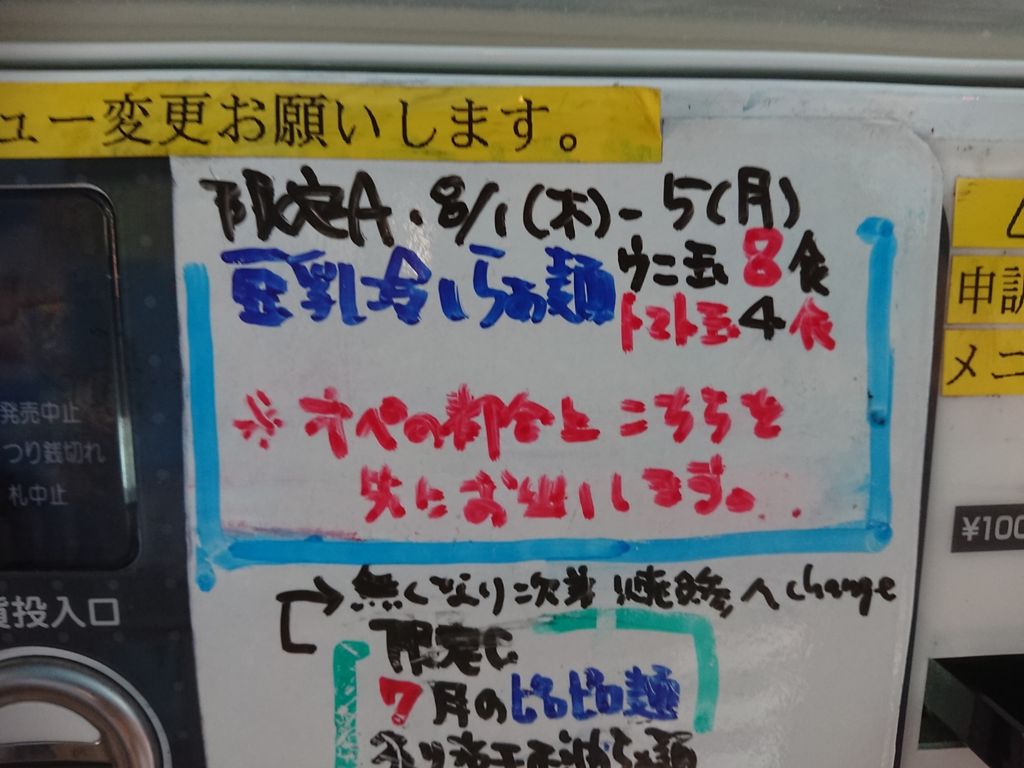 ュー変更お願いします。
限定A.8/1(木)-5(月)
豆乳冷しらぁ麺
ウニ玉8食
トマト玉4食
※オペの都合上こちらを
先にお出しします。
発売中止
つり銭切れ
札中止
投入口
申
メニ
¥100
無くなり次第 へchange
限定C
7月のピロピロ麺